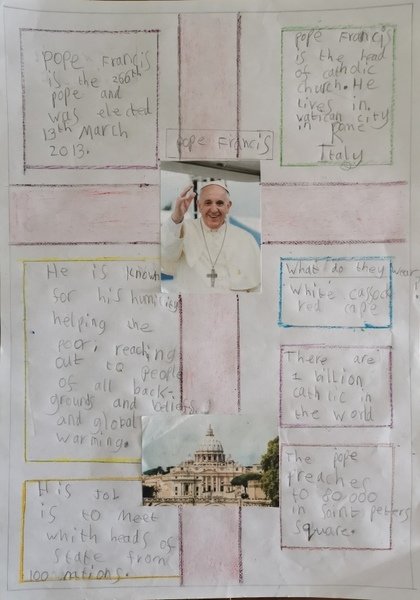 Pope Francis
is the 266th
pope and
was elected
13th March
2013.
pope Francis
is the head
of catholic
church. He
lives in
vatican city
in Rome
Italy
pope Francis
He is known
for his humility
helping the
poor, reaching
out to people
of all back-
grounds and beliefs
and global
warming.
What do they wear
White cassock
red cape
There are
1 billion
catholic in
the world
The pope
preaches
to 80 000
in saint peters
square.
His Job
is to meet
whith heads of
state from
100 nations.